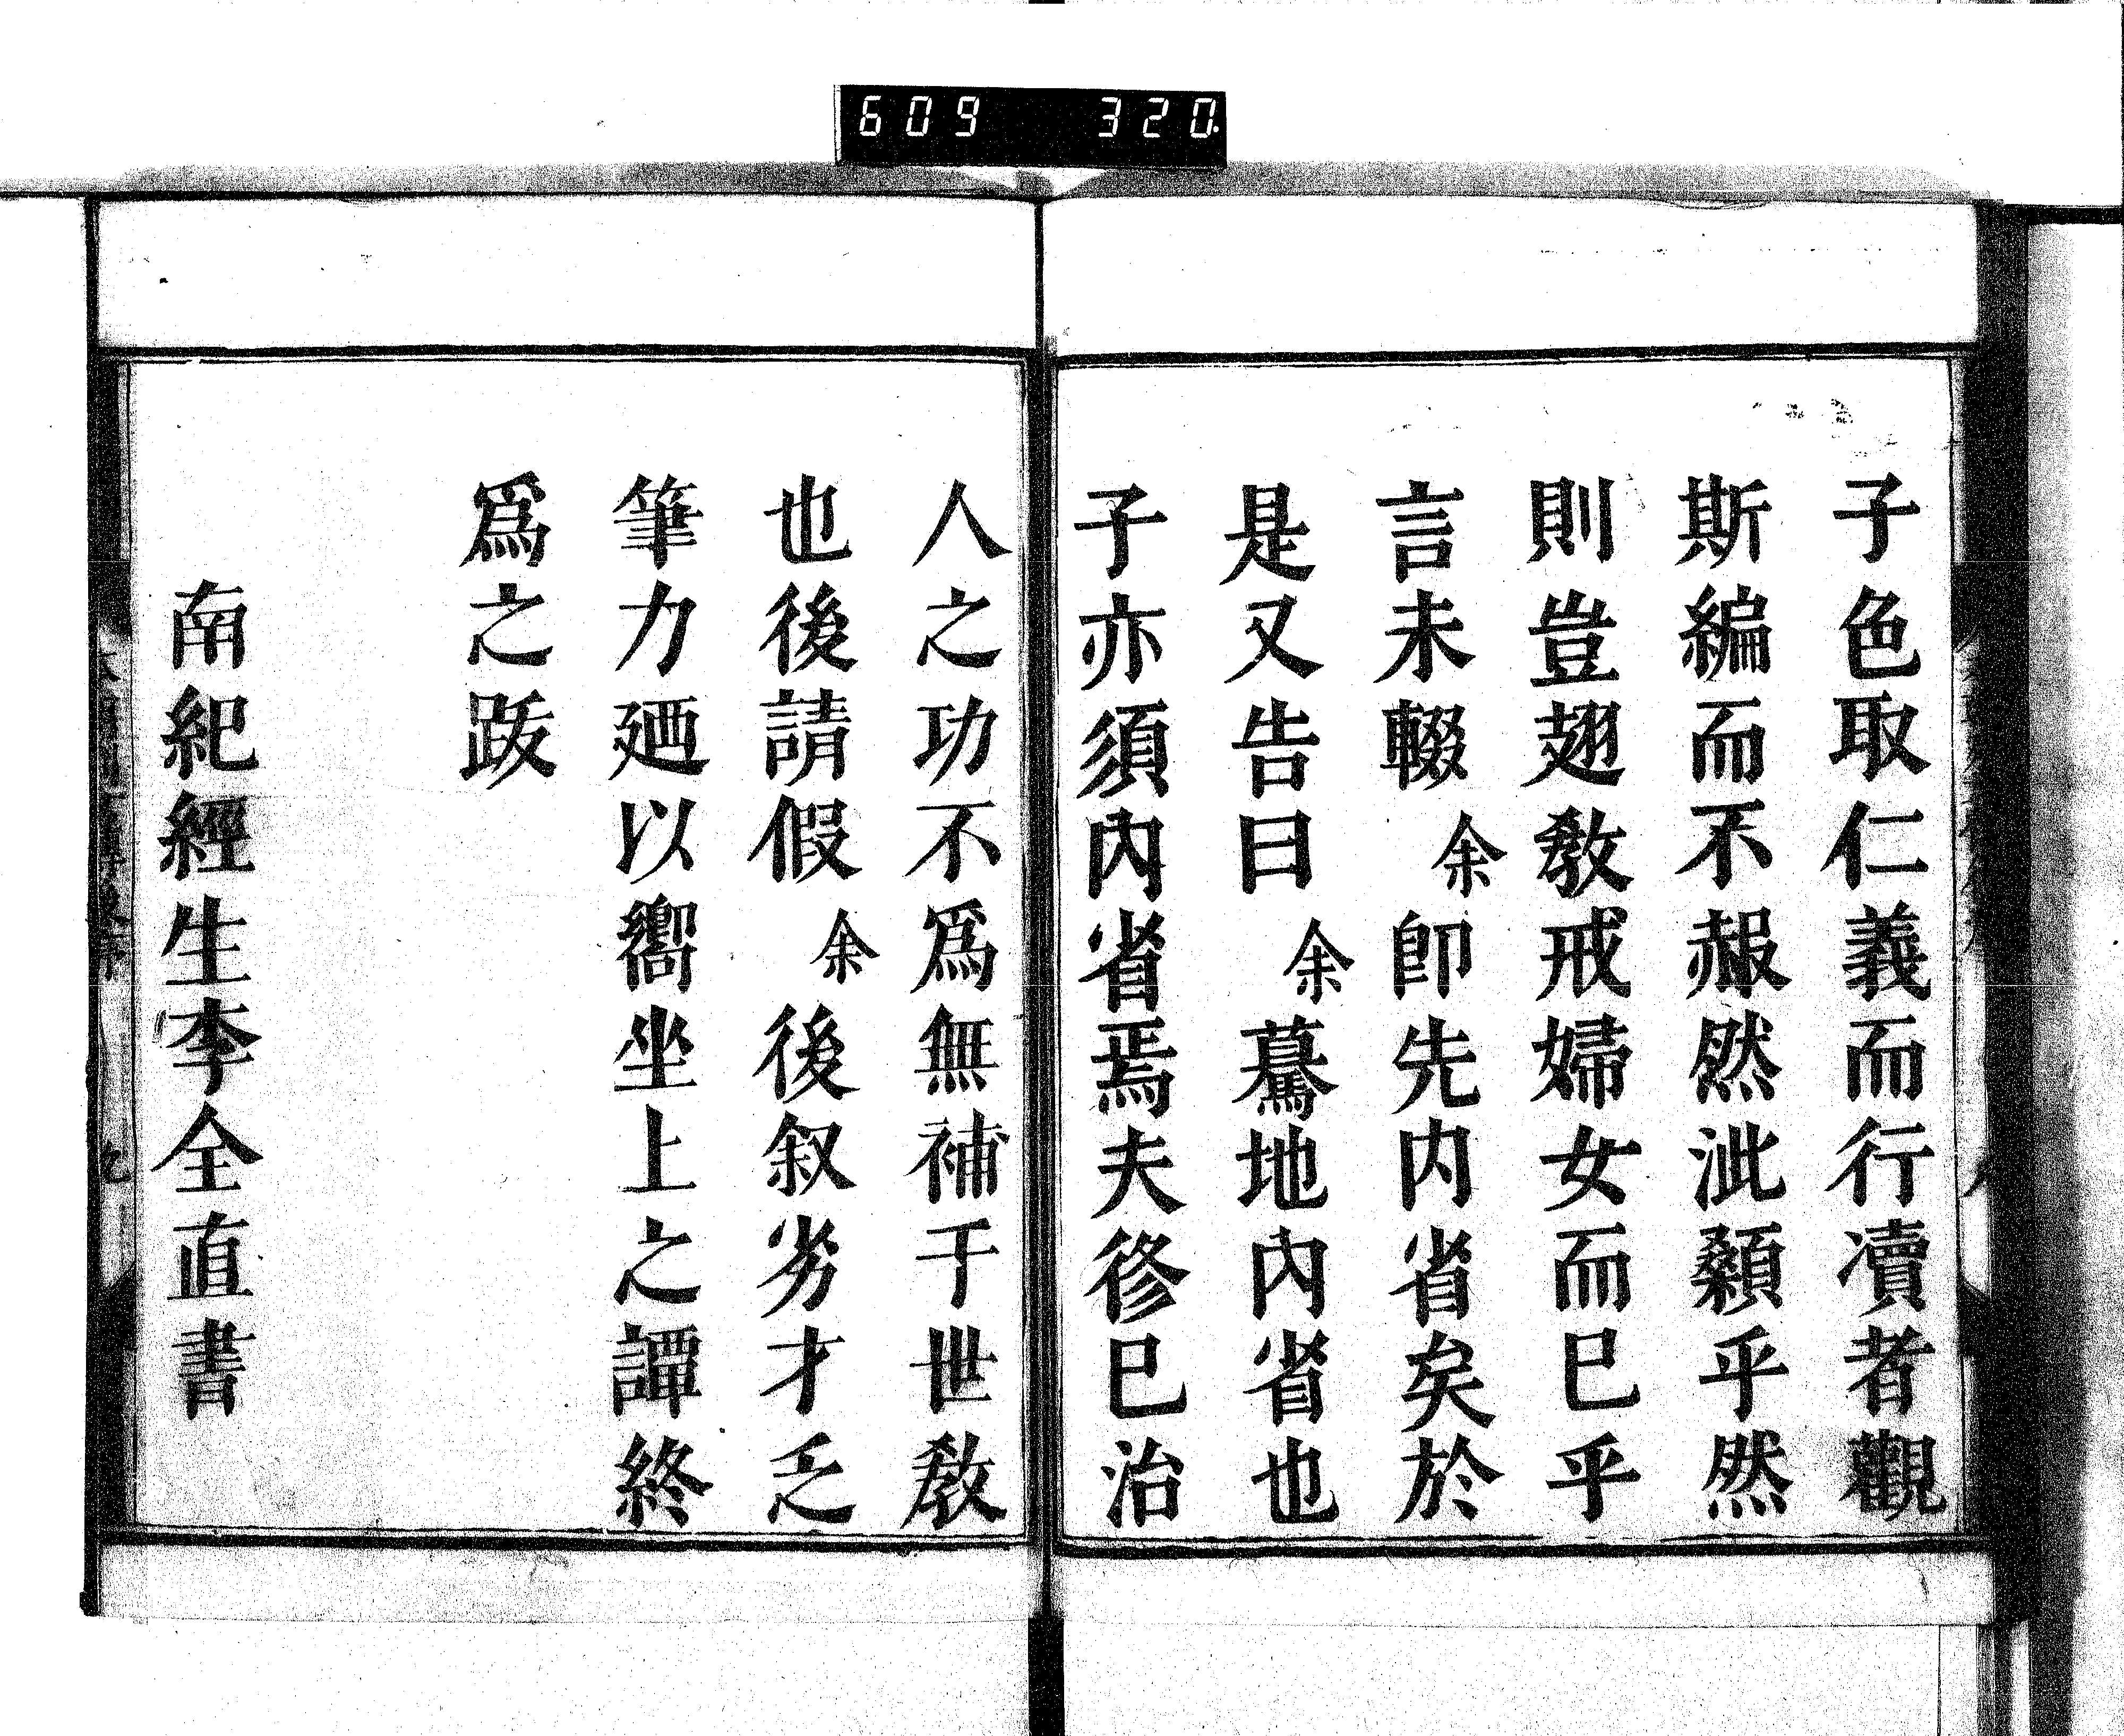 609 320
子色取仁義而行凟者觀
斯編而不赧然泚顙乎然
則豈翅教戒婦女而已乎
言未輟余卽先内省矣於
是又告曰余驀地內省也
子亦須內省焉夫修已治
人之功不爲無補于世教
也後請假余後叙劣才乏
筆力廼以嚮坐上之譚終
爲之跋
南紀經生李全直書